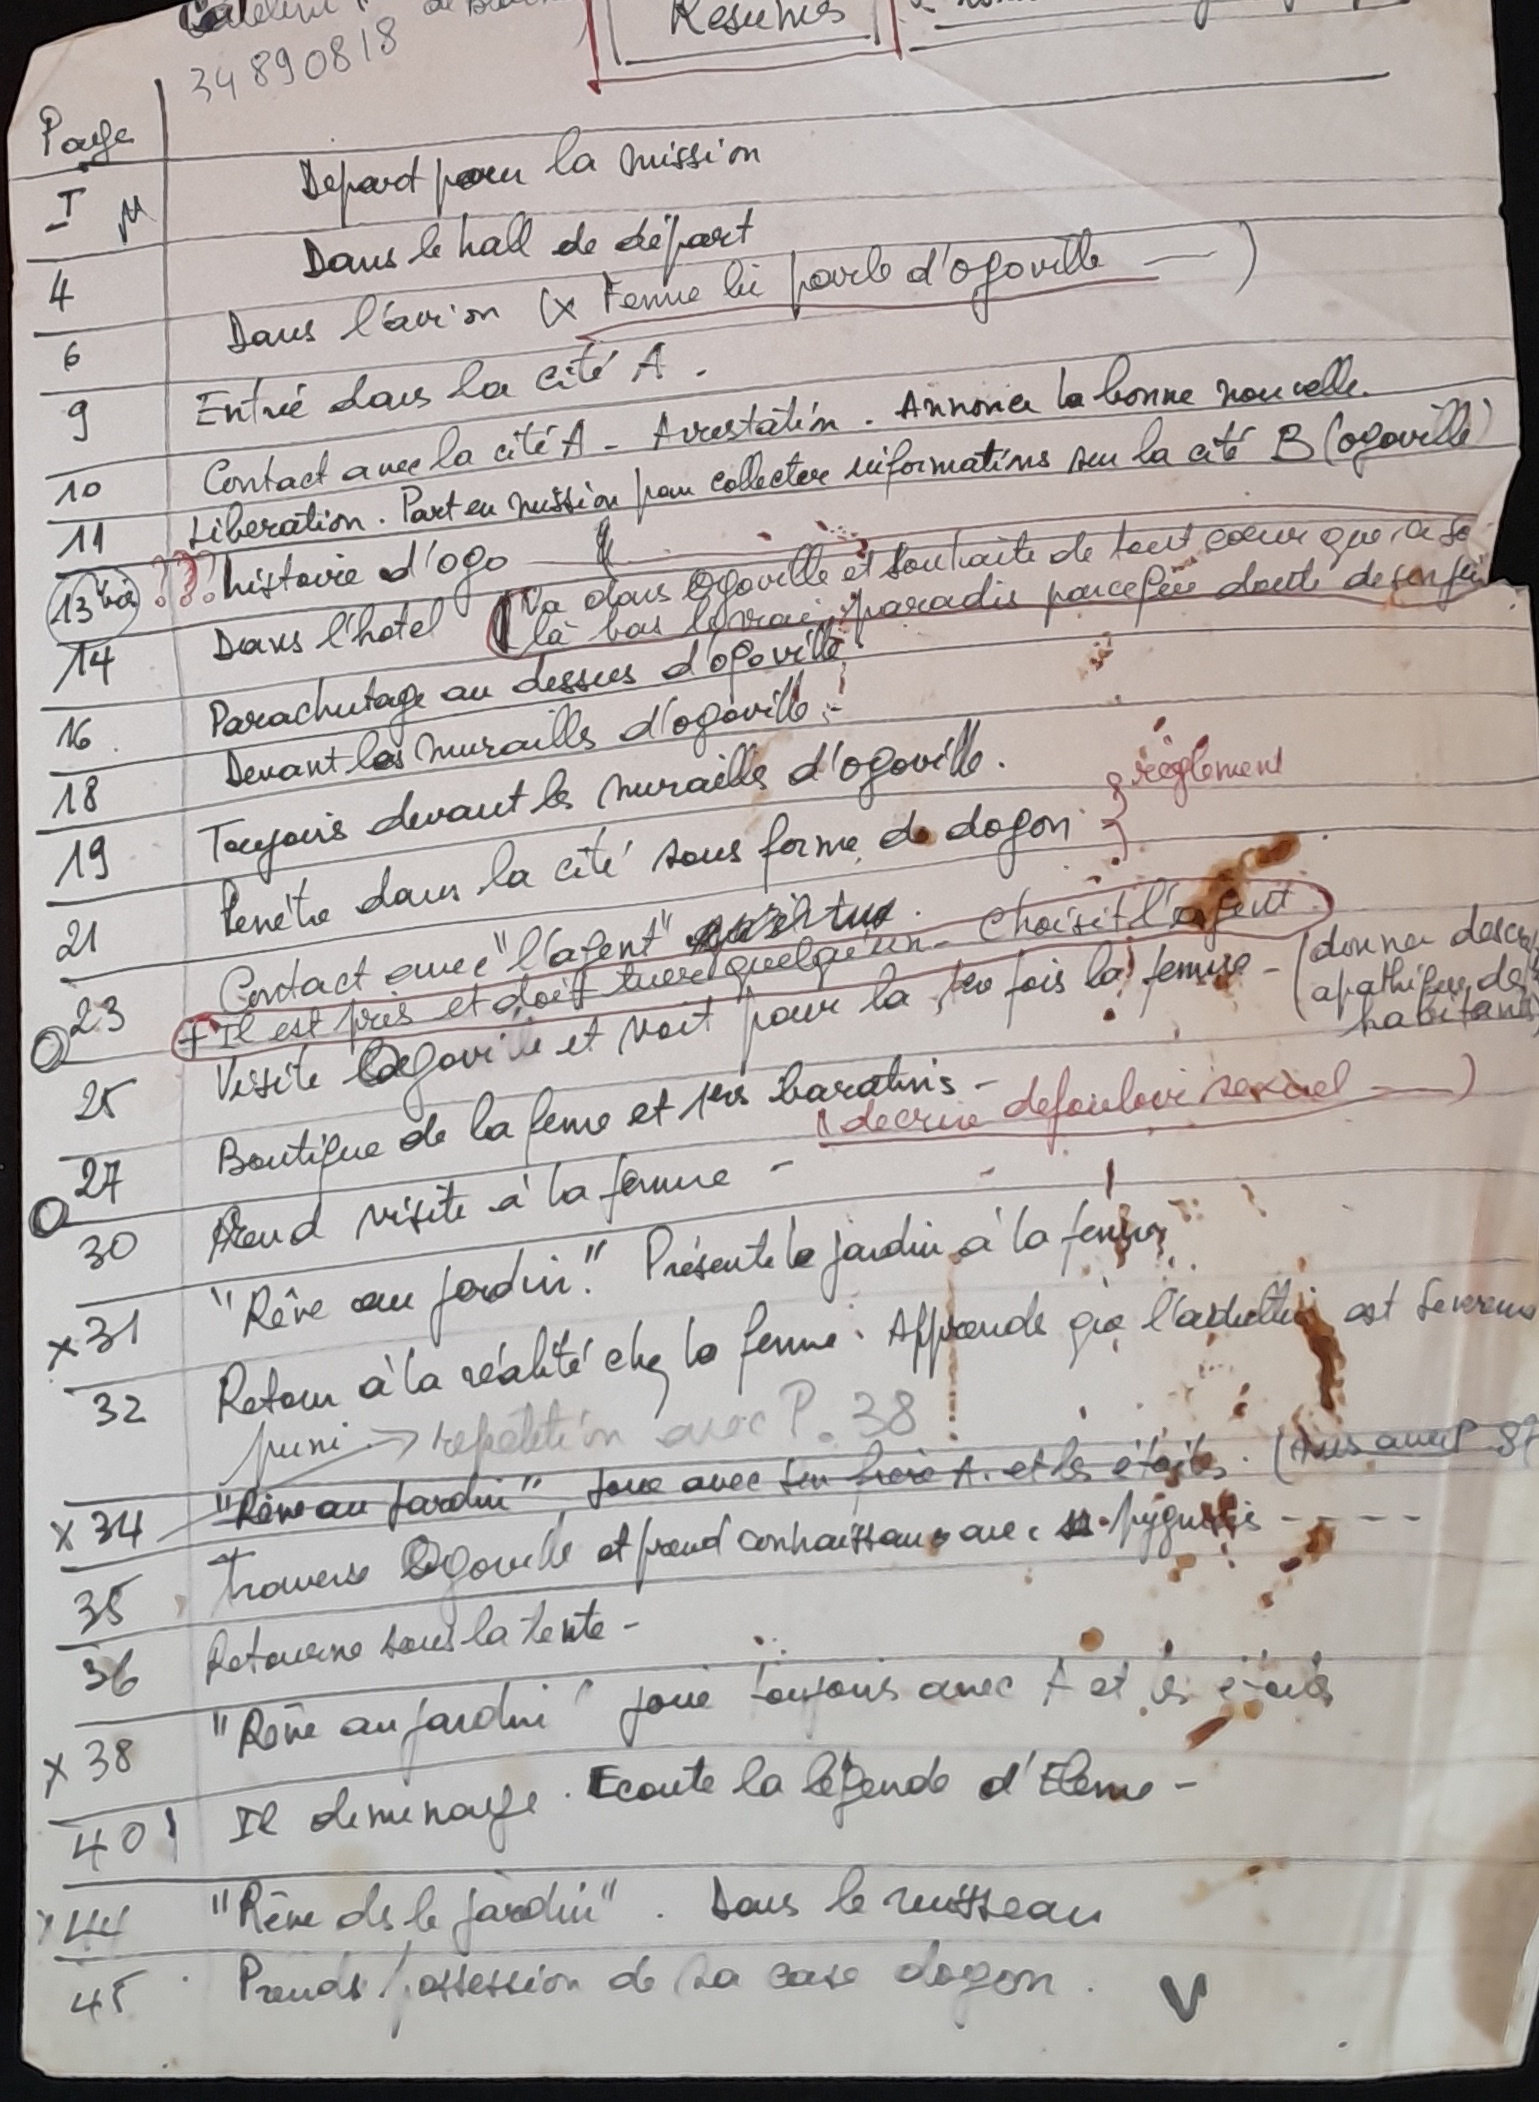 34890818
Résumés
Page
I M Départ pour la mission
4 Dans le hall de départ
6 Dans l'avion (x Femme lui parle d'ogoville — )
9 Entrée dans la cité A.
10 Contact avec la cité A - Arrestation. Annonce la bonne nouvelle.
11 Libération. Part en mission pour collecter informations sur la cité B (ogoville)
13 bis ??? histoire d'ogo
14 Dans l'hotel (Va dans Ogoville et souhaite de tout coeur que ce so
là bas le vrai paradis parceque doute de son
16 Parachutage au dessus d'ogoville
18 Devant les murailles d'ogoville.
19 Toujours devant les murailles d'ogoville.
21 Penètre dans la cité sous forme de dogon } règlement
23 Contact avec "l'agent"
+ Il est pris et doit tuer quelqu'un - Choisit l'agent
25 Visite Ogoville et voit pour la 1ère fois la femme - (donner descr
apathique des
habitants
27 Boutique de la femme et 1ers baratins -
(décrire defouloir sexuel — )
30 Rend visite à la femme -
x 31 "Rêve au jardin". Présente le jardin à la femme
32 Retour à la réalité chez la femme. Apprends que l'adultère est severem
puni → repetition avec P. 38
x 34 "Rêve au jardin" joue avec son frère A. et les étoiles.
35 Traverse Ogoville et prend connaissance avec pygmées - - - -
36 Retourne sous la tente -
x 38 "Rêve au jardin" joue toujours avec A et les étoiles
40 Il demenage. Ecoute la légende d'Eleme -
x 44 "Rêve ds le jardin". Dans le ruisseau
45 Prends possession de sa case dogon. V